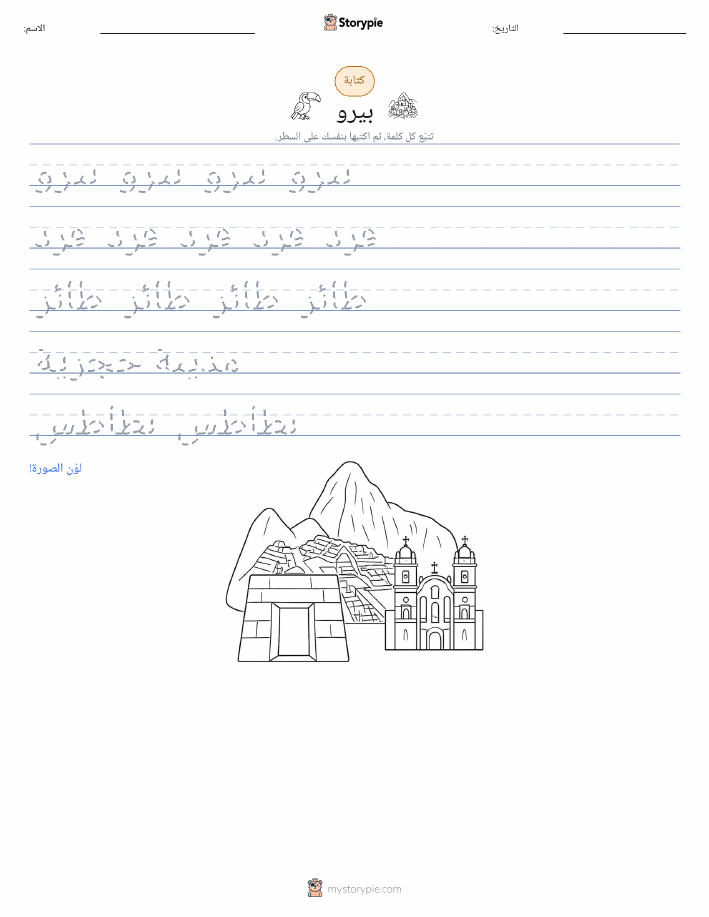 الاسم:
Storypie
التاريخ:
كتابة
بيرو
تتبّع كل كلمة، ثم اكتبها بنفسك على السطر.
بيرو بيرو بيرو بيرو
قرد قرد قرد قرد قرد
طائر طائر طائر طائر
مدينة حجرية
بطاطس بطاطس
لوّن الصورة!
mystorypie.com